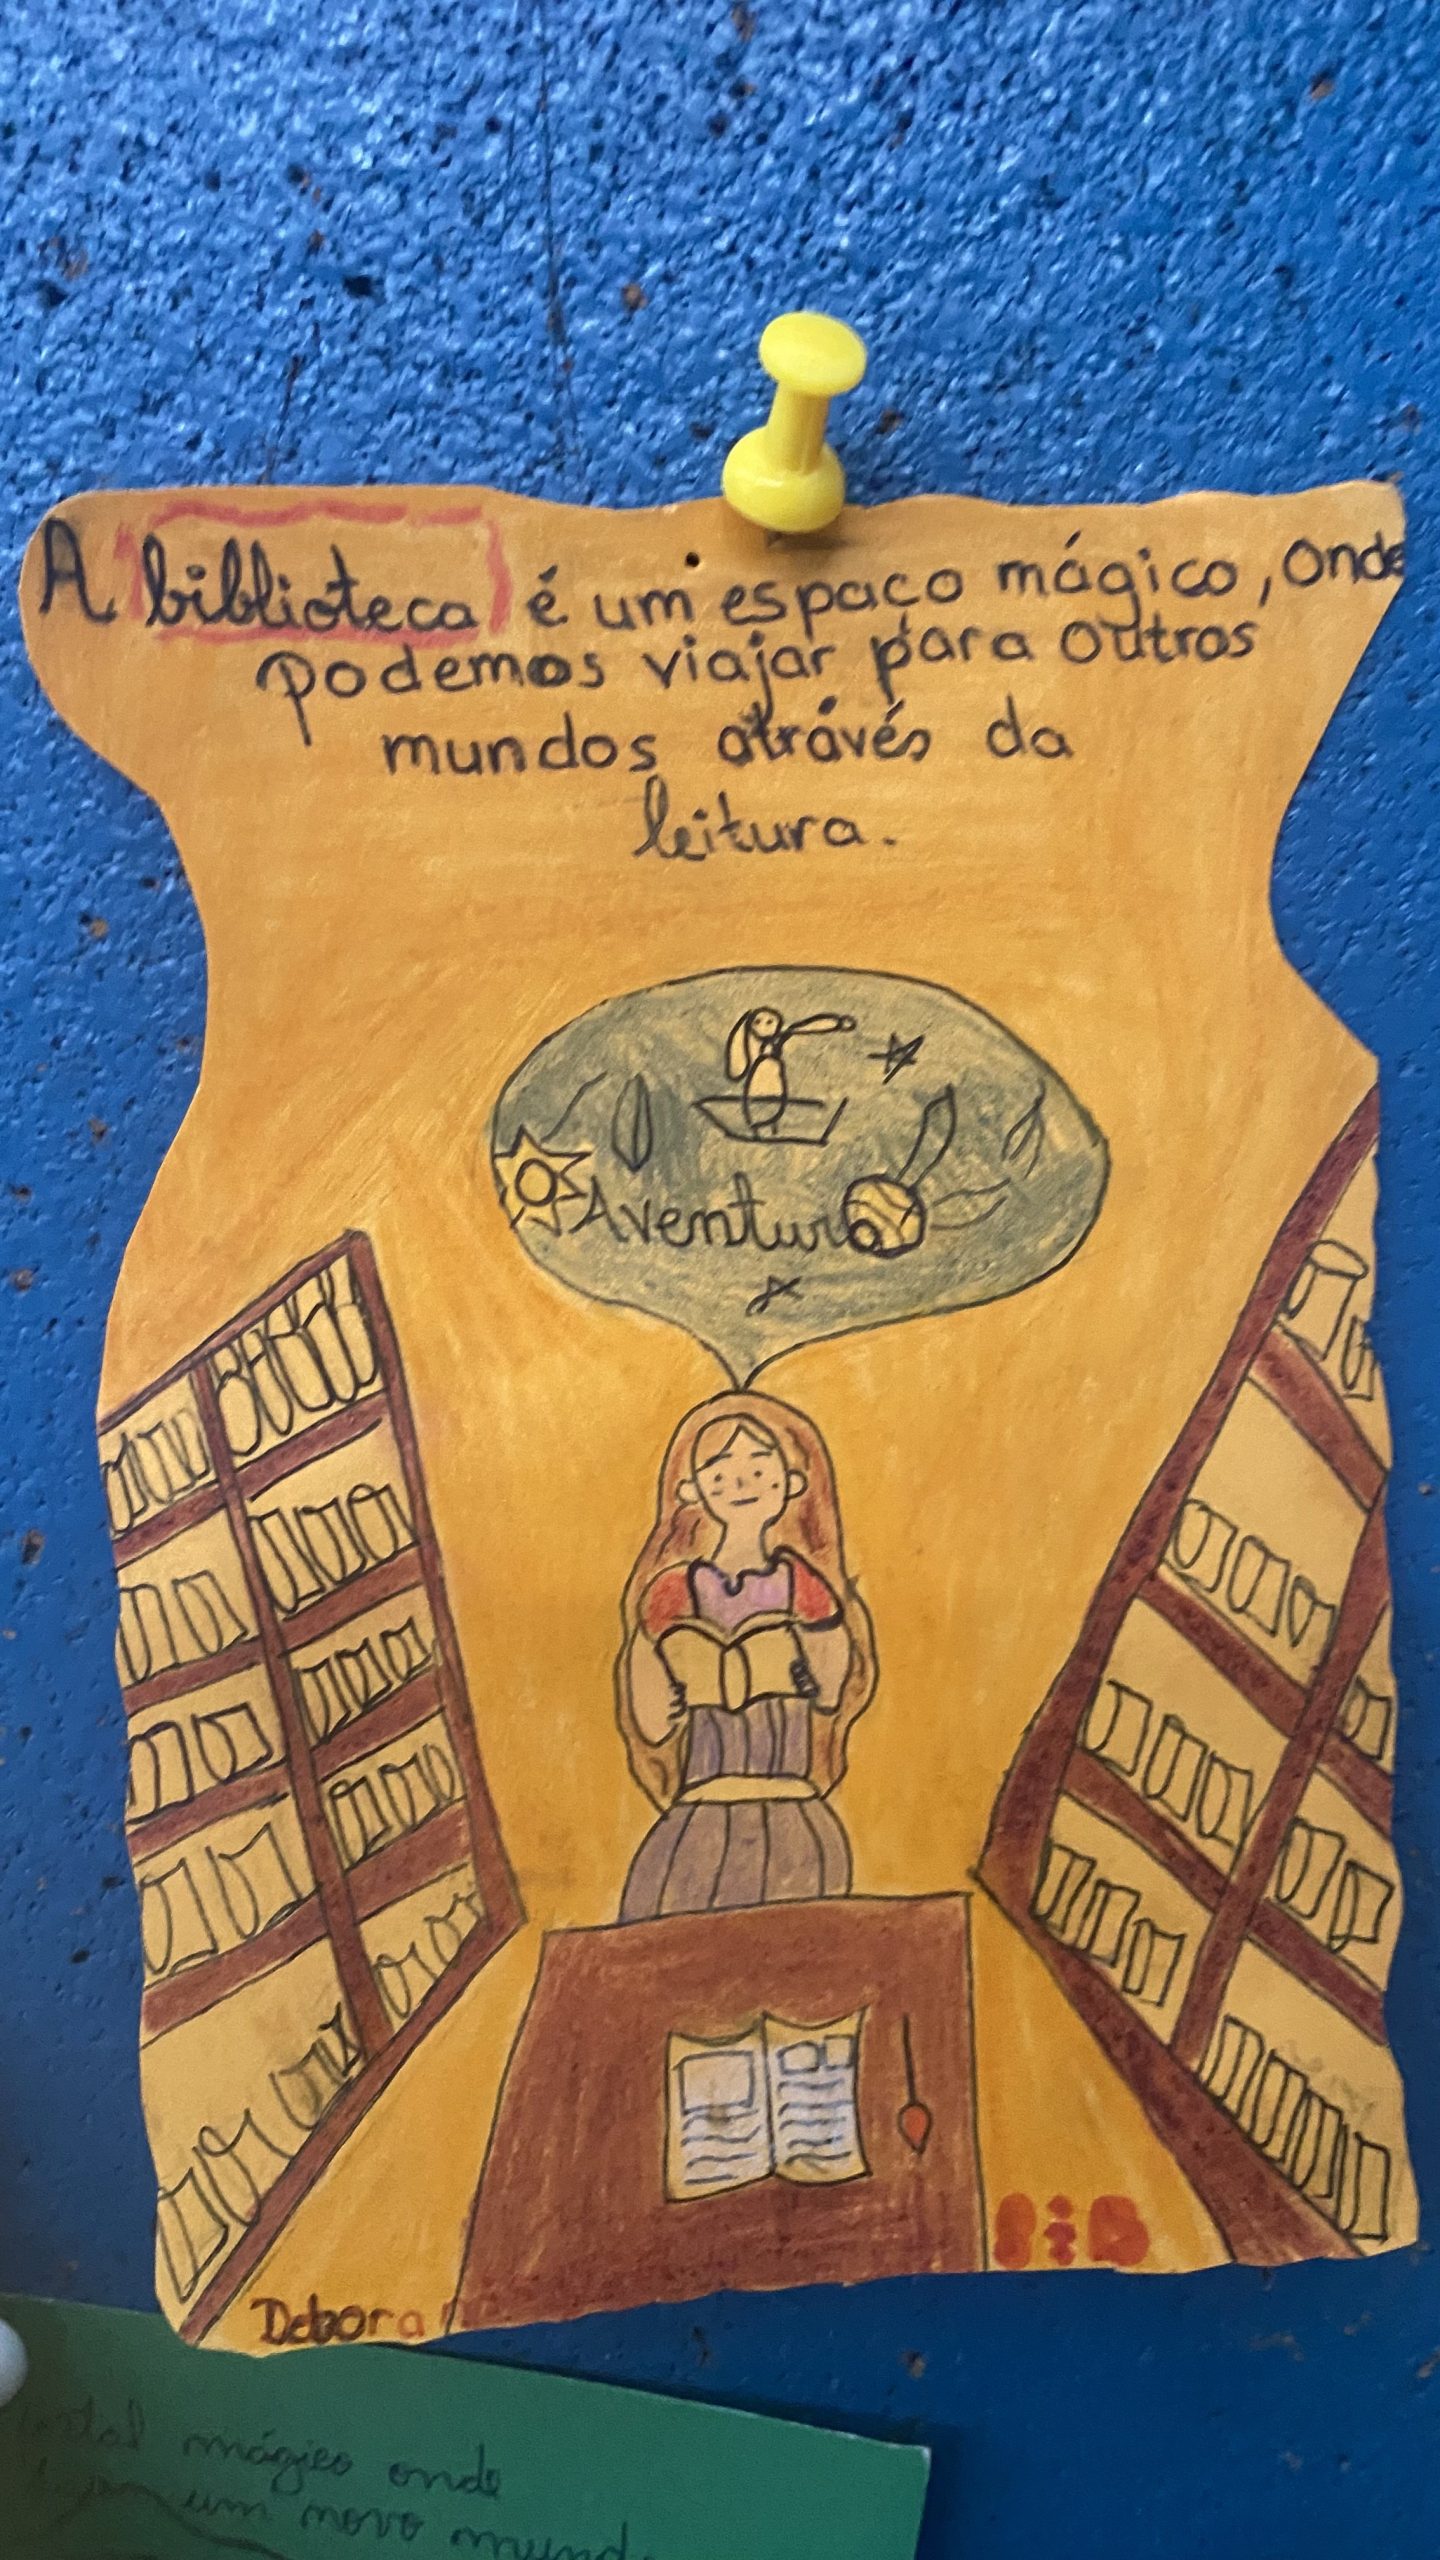 A biblioteca é um espaço mágico, onde
podemos viajar para outros
mundos através da
leitura.
Aventura
BiB
Debora
mágico onde
um novo